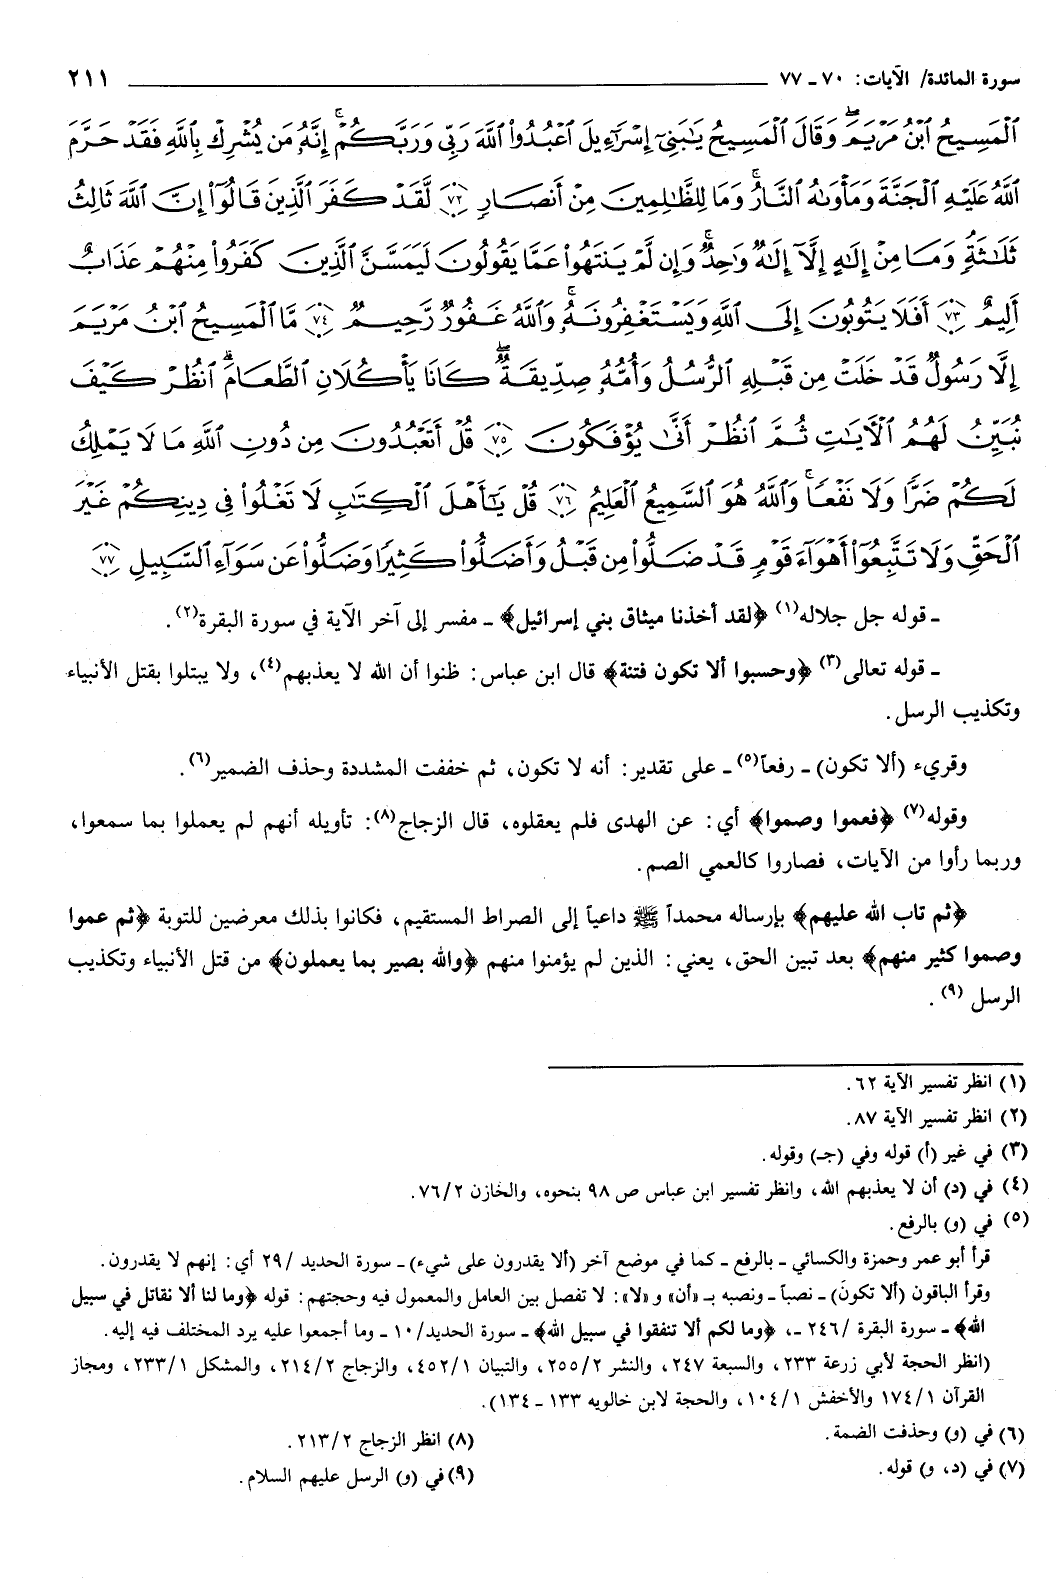 سورة المائدة/ الآيات: ٧٠ ـ ٧٧ ٢١١
ٱلۡمَسِيحُ ٱبۡنُ مَرۡيَمَۖ وَقَالَ ٱلۡمَسِيحُ يَٰبَنِيٓ إِسۡرَٰٓءِيلَ ٱعۡبُدُواْ ٱللَّهَ رَبِّي وَرَبَّكُمۡۚ إِنَّهُۥ مَن يُشۡرِكۡ بِٱللَّهِ فَقَدۡ حَرَّمَ
ٱللَّهُ عَلَيۡهِ ٱلۡجَنَّةَ وَمَأۡوَىٰهُ ٱلنَّارُۚ وَمَا لِلظَّٰلِمِينَ مِنۡ أَنصَارٖ ٧٢ لَّقَدۡ كَفَرَ ٱلَّذِينَ قَالُوٓاْ إِنَّ ٱللَّهَ ثَالِثُ
ثَلَٰثَةٖۘ وَمَا مِنۡ إِلَٰهٍ إِلَّآ إِلَٰهٞ وَٰحِدٞۚ وَإِن لَّمۡ يَنتَهُواْ عَمَّا يَقُولُونَ لَيَمَسَّنَّ ٱلَّذِينَ كَفَرُواْ مِنۡهُمۡ عَذَابٌ
أَلِيمٌ ٧٣ أَفَلَا يَتُوبُونَ إِلَى ٱللَّهِ وَيَسۡتَغۡفِرُونَهُۥۚ وَٱللَّهُ غَفُورٞ رَّحِيمٞ ٧٤ مَّا ٱلۡمَسِيحُ ٱبۡنُ مَرۡيَمَ
إِلَّا رَسُولٞ قَدۡ خَلَتۡ مِن قَبۡلِهِ ٱلرُّسُلُ وَأُمُّهُۥ صِدِّيقَةٞۖ كَانَا يَأۡكُلَانِ ٱلطَّعَامَۗ ٱنظُرۡ كَيۡفَ
نُبَيِّنُ لَهُمُ ٱلۡأٓيَٰتِ ثُمَّ ٱنظُرۡ أَنَّىٰ يُؤۡفَكُونَ ٧٥ قُلۡ أَتَعۡبُدُونَ مِن دُونِ ٱللَّهِ مَا لَا يَمۡلِكُ
لَكُمۡ ضَرّٗا وَلَا نَفۡعٗاۚ وَٱللَّهُ هُوَ ٱلسَّمِيعُ ٱلۡعَلِيمُ ٧٦ قُلۡ يَٰٓأَهۡلَ ٱلۡكِتَٰبِ لَا تَغۡلُواْ فِي دِينِكُمۡ غَيۡرَ
ٱلۡحَقِّ وَلَا تَتَّبِعُوٓاْ أَهۡوَآءَ قَوۡمٖ قَدۡ ضَلُّواْ مِن قَبۡلُ وَأَضَلُّواْ كَثِيرٗا وَضَلُّواْ عَن سَوَآءِ ٱلسَّبِيلِ ٧٧
ـ قوله جل جلاله(١) ﴿لقد أخذنا ميثاق بني إسرائيل﴾ ـ مفسر إلى آخر الآية في سورة البقرة(٢).
ـ قوله تعالى(٣) ﴿وحسبوا ألا تكون فتنة﴾ قال ابن عباس: ظنوا أن الله لا يعذبهم(٤)، ولا يبتلوا بقتل الأنبياء
وتكذيب الرسل.
وقريء (ألا تكون) ـ رفعاً(٥) ـ على تقدير: أنه لا تكون، ثم خففت المشددة وحذف الضمير(٦).
وقوله(٧) ﴿فعموا وصموا﴾ أي: عن الهدى فلم يعقلوه، قال الزجاج(٨): تأويله أنهم لم يعملوا بما سمعوا،
وربما رأوا من الآيات، فصاروا كالعمي الصم.
﴿ثم تاب الله عليهم﴾ بإرساله محمداً ﷺ داعياً إلى الصراط المستقيم، فكانوا بذلك معرضين للتوبة ﴿ثم عموا
وصموا كثير منهم﴾ بعد تبين الحق، يعني: الذين لم يؤمنوا منهم ﴿والله بصير بما يعملون﴾ من قتل الأنبياء وتكذيب
الرسل (٩).
(١) انظر تفسير الآية ٦٢.
(٢) انظر تفسير الآية ٨٧.
(٣) في غير (أ) قوله وفي (جـ) وقوله.
(٤) في (د) أن لا يعذبهم الله، وانظر تفسير ابن عباس ص ٩٨ بنحوه، والخازن ٧٦/٢.
(٥) في (و) بالرفع.
قرأ أبو عمر وحمزة والكسائي ـ بالرفع ـ كما في موضع آخر (ألا يقدرون على شيء) ـ سورة الحديد /٢٩ أي: إنهم لا يقدرون.
وقرأ الباقون (ألا تكونَ) ـ نصباً ـ ونصبه بـ «أن» و «لا»: لا تفصل بين العامل والمعمول فيه وحجتهم: قوله ﴿وما لنا ألا نقاتل في سبيل
الله﴾ ـ سورة البقرة /٢٤٦ ـ، ﴿وما لكم ألا تنفقوا في سبيل الله﴾ ـ سورة الحديد/١٠ ـ وما أجمعوا عليه يرد المختلف فيه إليه.
(انظر الحجة لأبي زرعة ٢٣٣، والسبعة ٢٤٧، والنشر ٢٥٥/٢، والتبيان ٤٥٢/١، والزجاج ٢١٤/٢، والمشكل ٢٣٣/١، ومجاز
القرآن ١٧٤/١ والأخفش ١٠٤/١، والحجة لابن خالويه ١٣٣ ـ ١٣٤).
(٦) في (و) وحذفت الضمة.
(٧) في (د، و) قوله.
(٨) انظر الزجاج ٢١٣/٢.
(٩) في (و) الرسل عليهم السلام.